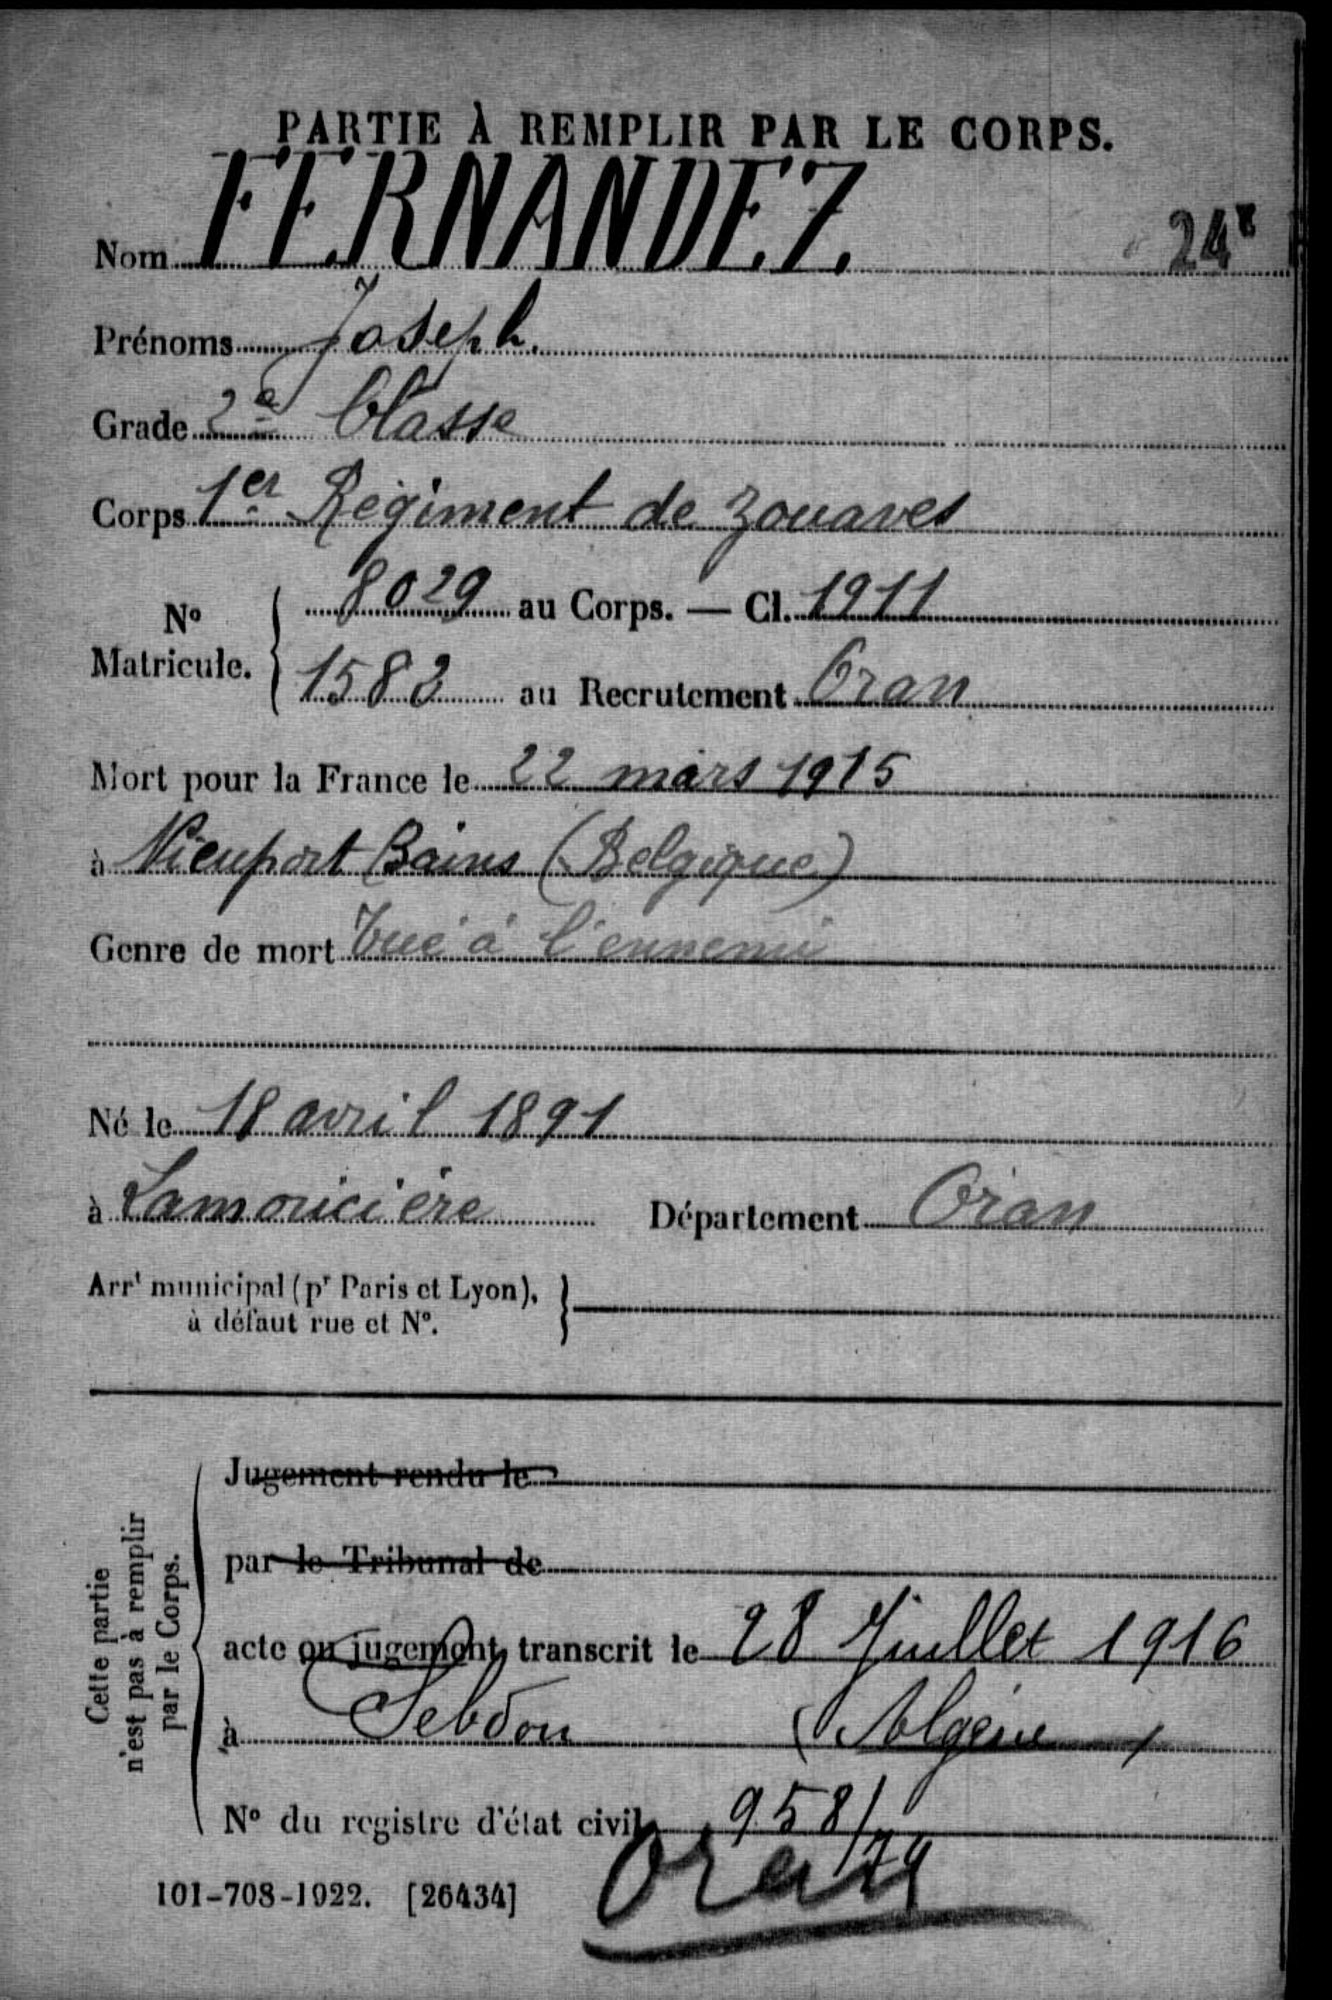 PARTIE À REMPLIR PAR LE CORPS.
Nom FERNANDEZ.
Prénoms Joseph.
Grade 2e Classe
Corps 1er Régiment de Zouaves
No Matricule. 8029 au Corps. — Cl. 1911
1583 au Recrutement Oran
Mort pour la France le 22 mars 1915
à Nieuport Bains (Belgique)
Genre de mort Tué à l'ennemi
Né le 18 avril 1891
à Lamoricière Département Oran
Arrt municipal (pr Paris et Lyon),
à défaut rue et No.
Cette partie
n'est pas à remplir
par le Corps.
Jugement rendu le
par le Tribunal de
acte ou jugement transcrit le 28 Juillet 1916
à Sebdou (Algérie)
No du registre d'état civil 958/79
Oran
101-708-1922. [26434]